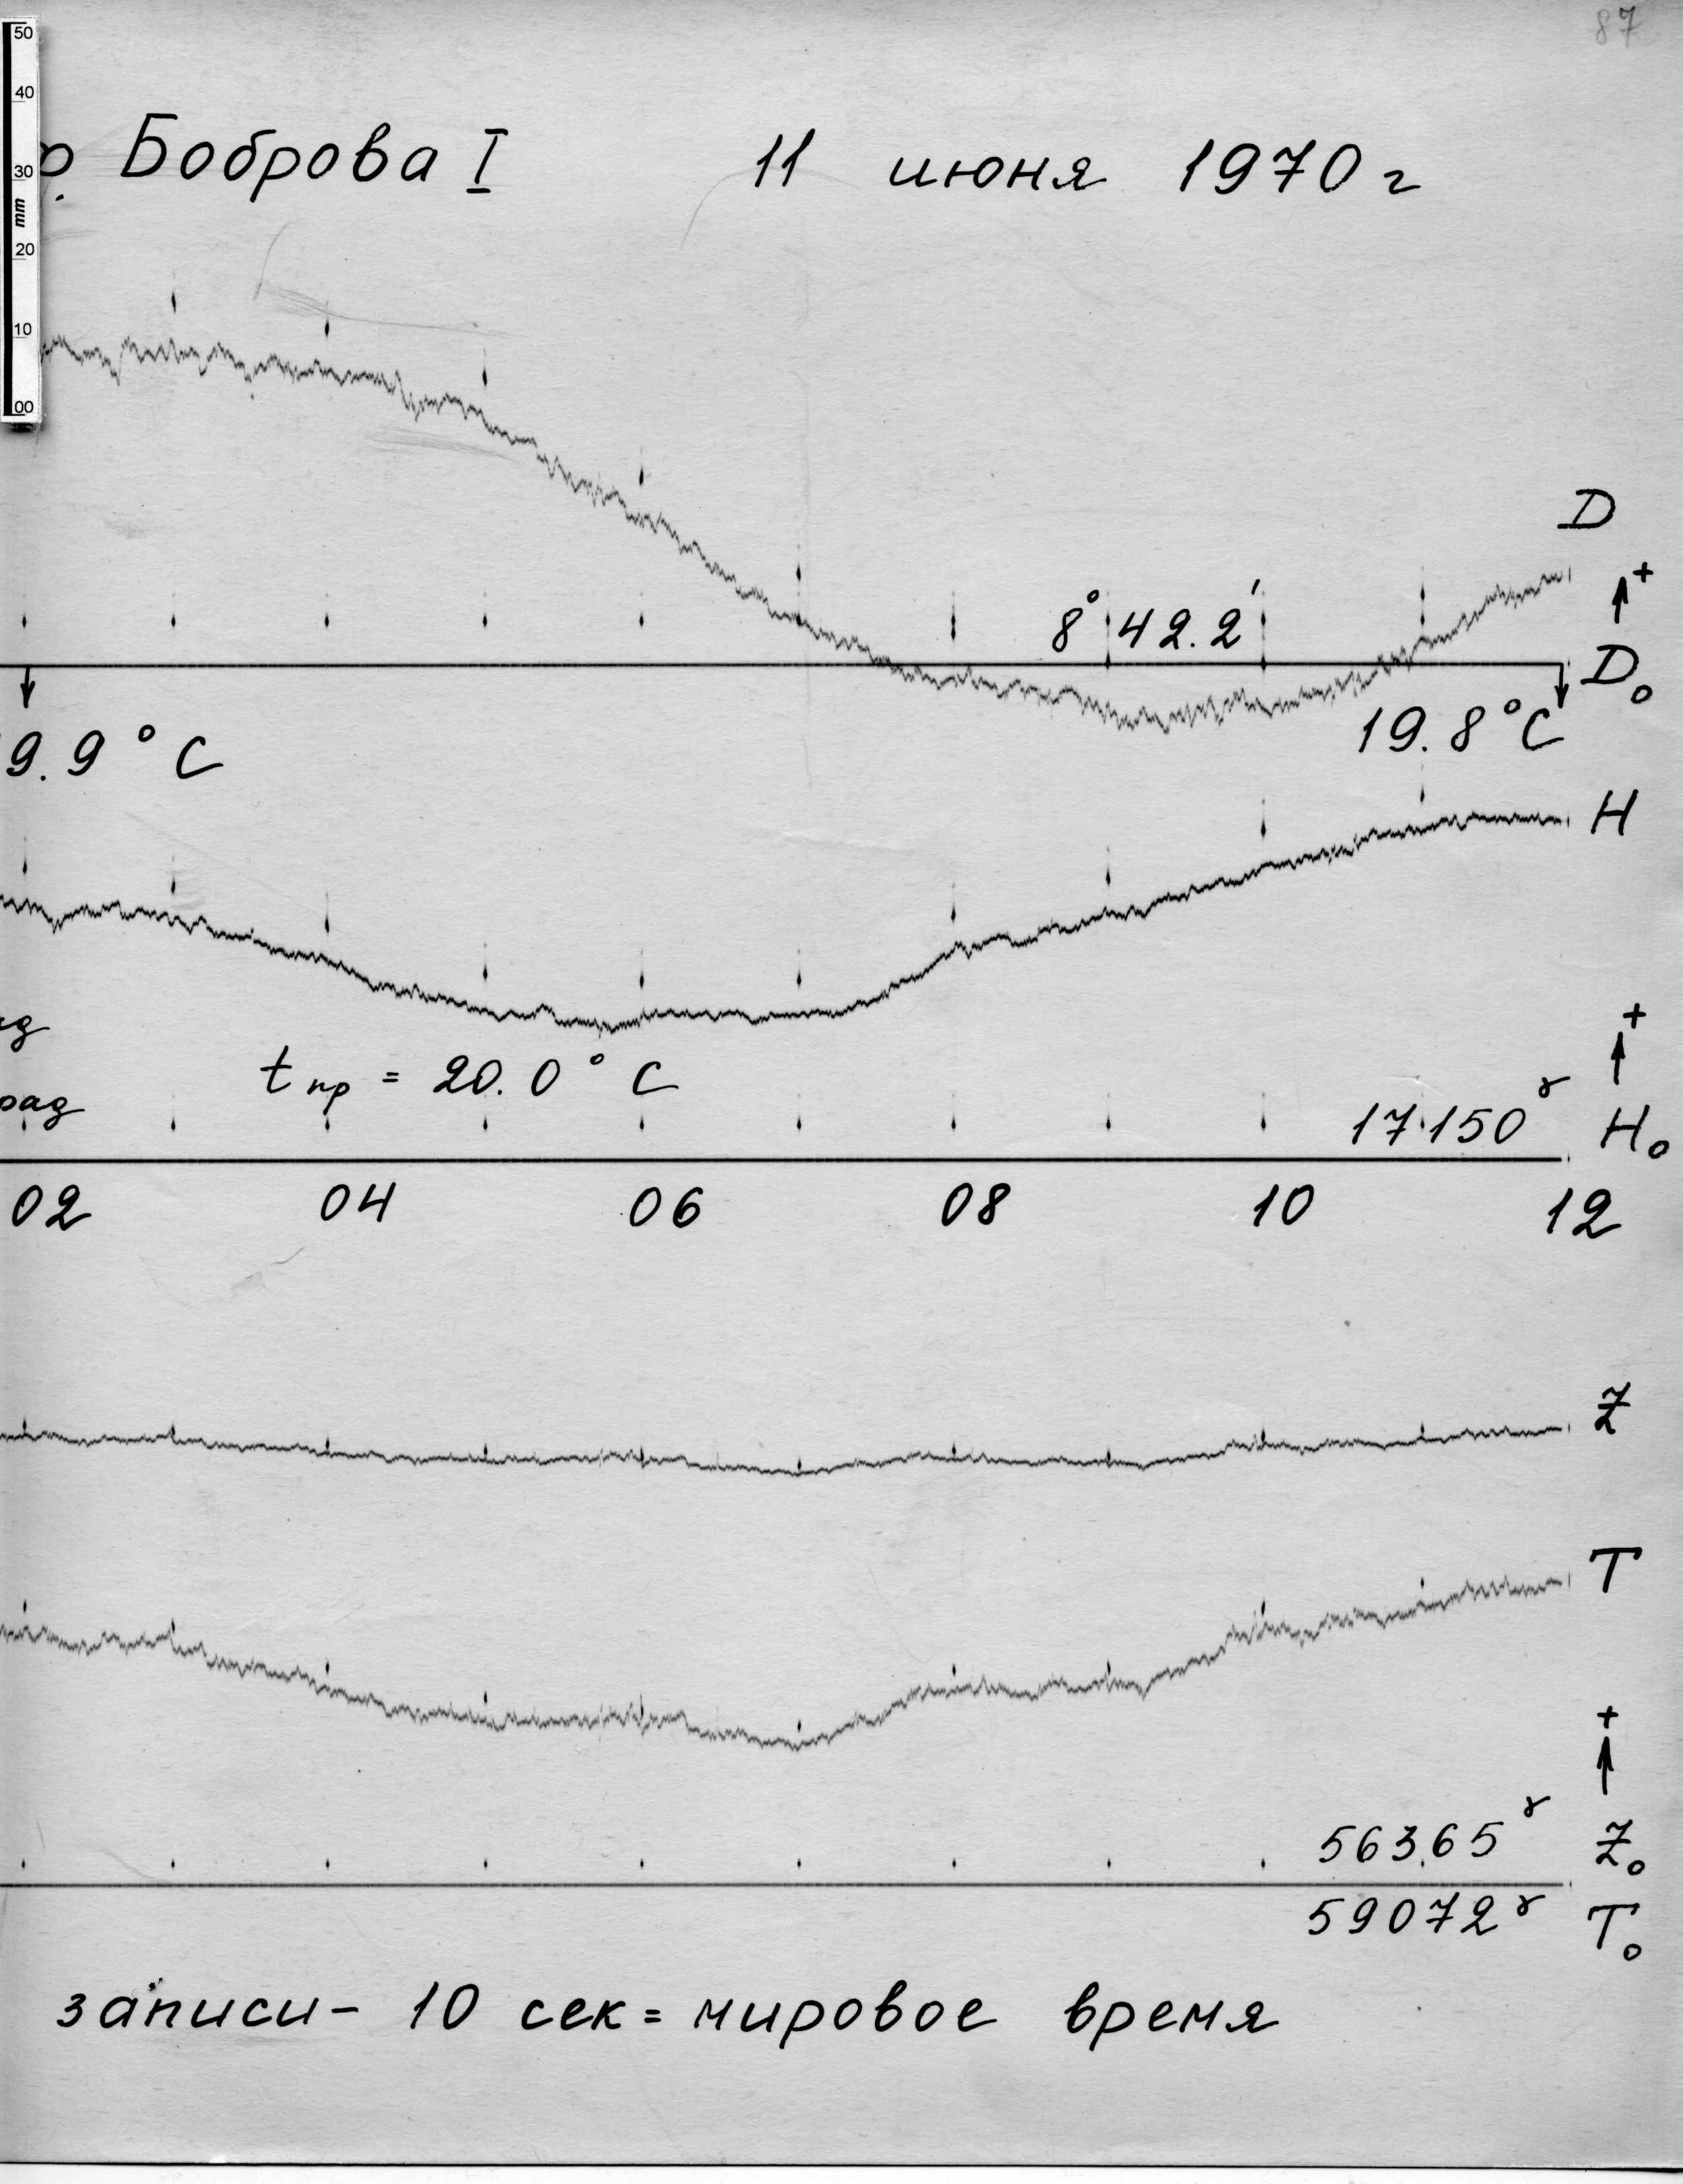 87
50
40
р. Боброва I 11 июня 1970 г
30
mm
20
10
00
D
+
8° 42.2′
D₀
9.9° C 19.8° C
H
+
t пр = 20.0° C
рад
17150 γ H₀
02 04 06 08 10 12
Z
T
+
56365 γ Z₀
59072 γ T₀
записи - 10 сек = мировое время